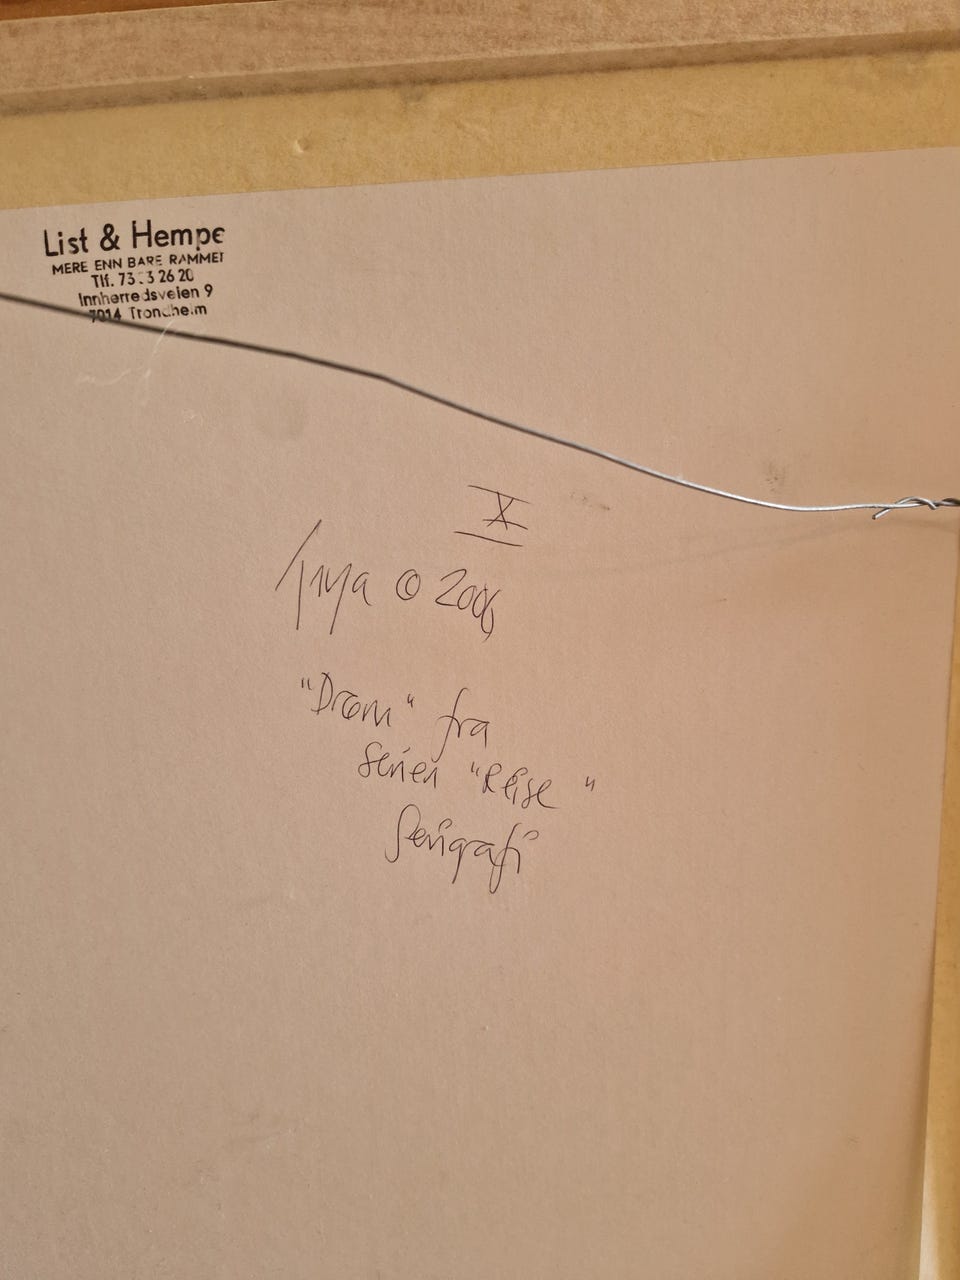 List & Hempe
MERE ENN BARE RAMMER
Tlf. 73 3 26 20
Innherredsveien 9
7014 Trondheim
X
© 2006
"Drøm" fra
serien "Reise"
Serigrafi